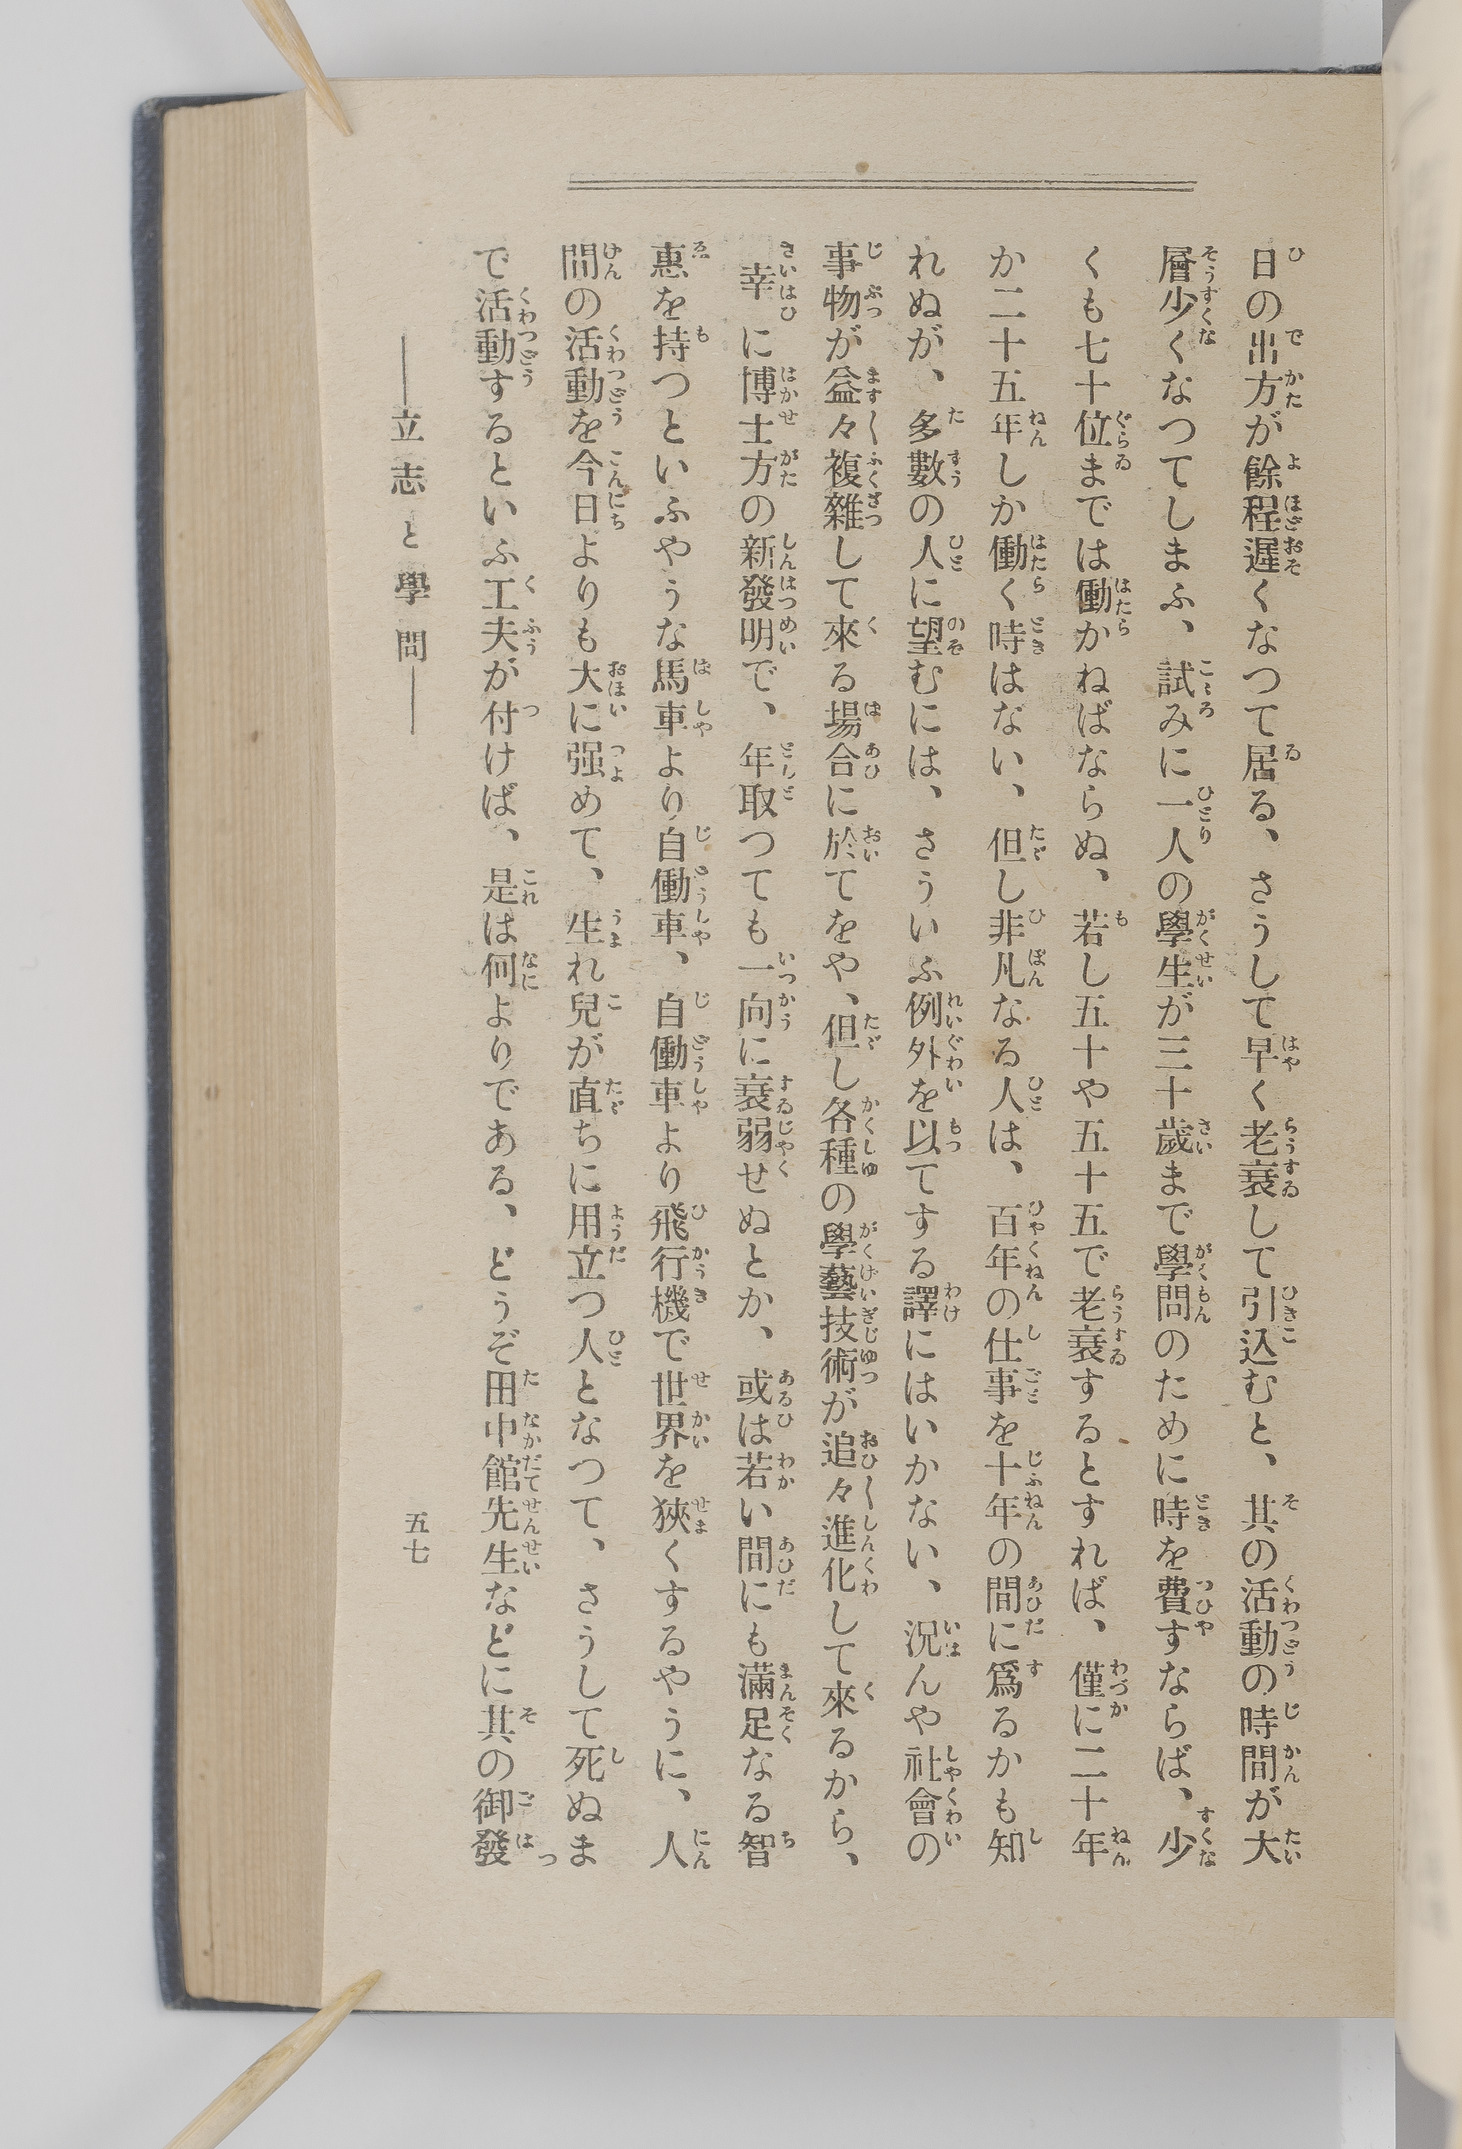 日の出方が餘程遲くなつて居る、さうして早く老衰して引込むと、其の活動の時間が大
層少くなつてしまふ、試みに一人の學生が三十歲まで學問のために時を費すならば、少
くも七十位までは働かねばならぬ、若し五十や五十五で老衰するとすれば、僅に二十年
か二十五年しか働く時はない、但し非凡なる人は、百年の仕事を十年の間に爲るかも知
れぬが、多數の人に望むには、さういふ例外を以てする譯にはいかない、況んや社會の
事物が益々複雜して來る場合に於てをや、但し各種の學藝技術が追々進化して來るから、
幸に博士方の新發明で、年取つても一向に衰弱せぬとか、或は若い間にも滿足なる智
惠を持つといふやうな馬車より自働車、自働車より飛行機で世界を狹くするやうに、人
間の活動を今日よりも大に强めて、生れ兒が直ちに用立つ人となつて、さうして死ぬま
で活動するといふ工夫が付けば、是は何よりである、どうぞ田中館先生などに其の御發
――立志と學問――
五七